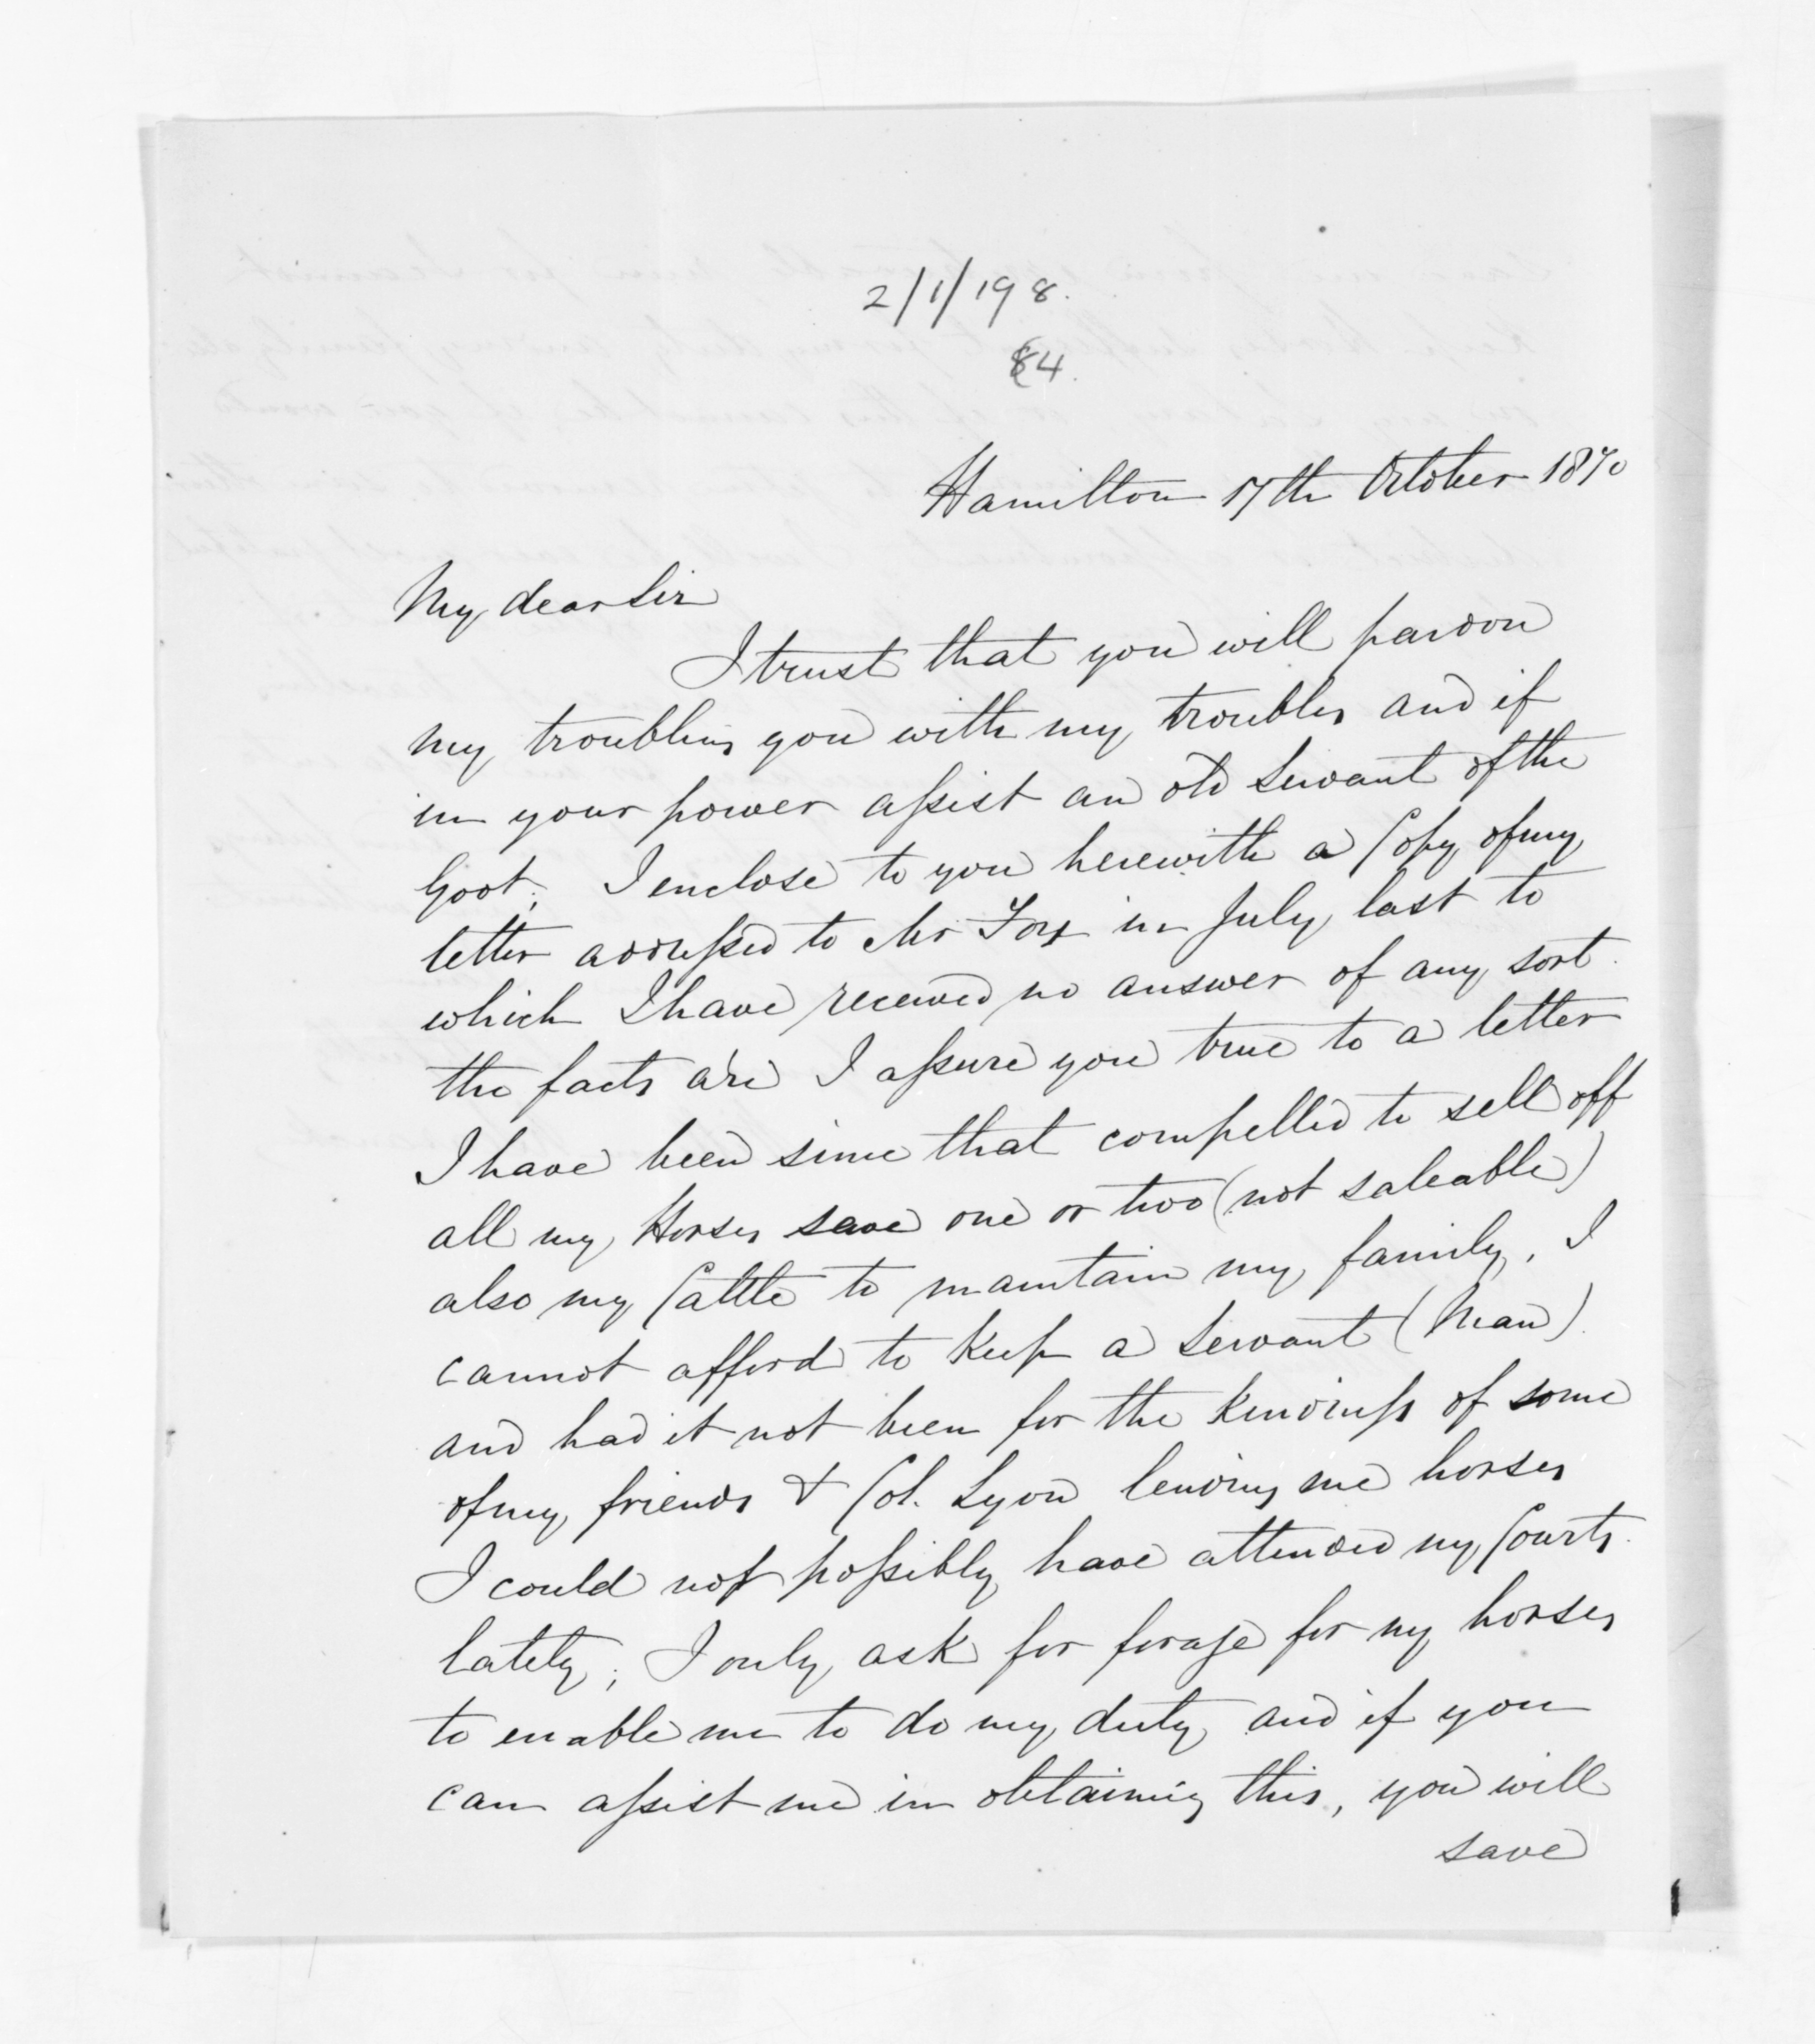 2/1/198.
84.
Hamilton 17th October 1870
My dear Sir
I trust that you will pardon
my troubling you with my troubles and if
in your power assist an old Servant of the
Govt; I enclose to you herewith a Copy of my
letter addressed to Mr Fox in July last to
which I have received no answer of any sort.
the facts are I assure you true to a letter
I have been since that compelled to sell off
all my Horses save one or two (not saleable)
also my Cattle to maintain my family, I
cannot afford to keep a Servant (Man)
and had it not been for the kindness of some
of my friends & Col. Lyon lending me horses
I could not possibly have attended my Courts
lately; I only ask for forage for my horses
to enable me to do my duty and if you
can assist me in obtaining this, you will
save